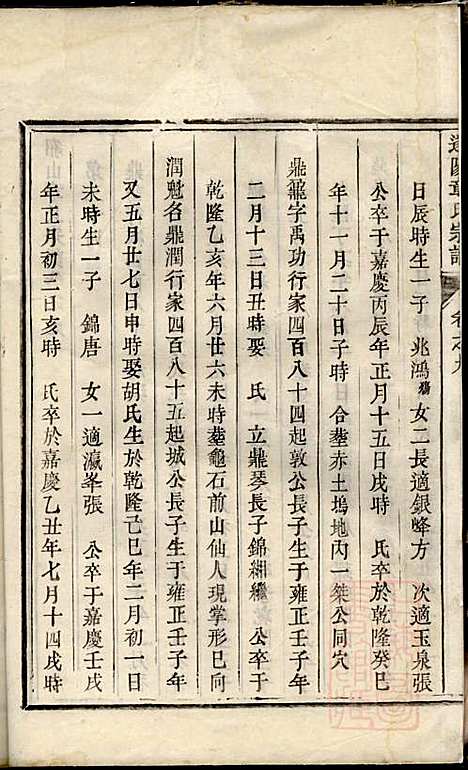 氏宗譜
日辰時生一子 兆鴻 殤 女二長適銀峰方 次適玉泉張
公卒于嘉慶丙辰年正月十五日戌時 氏卒於乾隆癸巳
年十一月二十日子時 合塟赤土塢地內一桀公同穴
鼎龗字禹功行家四百八十四起敦公長子生于雍正壬子年
二月十三日丑時娶 氏 立鼎琴長子錦緗繼 公卒于
乾隆乙亥年六月廿六未時塟龜石前山仙人現掌形巳向
潤魁名鼎潤行家四百八十五起城公長子生于雍正壬子年
又五月廿七日申時娶胡氏生於乾隆己巳年二月初一日
未時生一子 錦唐 女一適瀛峯張 公卒于嘉慶壬戌
年正月初三日亥時 氏卒於嘉慶乙丑年七月十四戌時